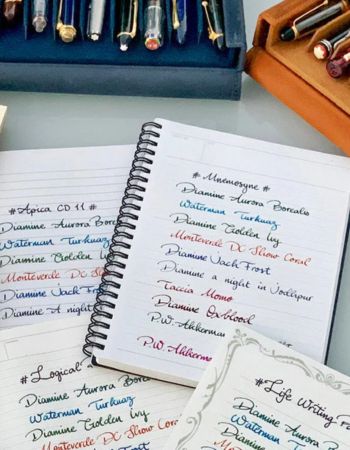 # Mnemosyne #
Diamine Aurora Borealis
Waterman Turkuaz
Diamine Golden Ivy
Monteverde DC Show Coral
Diamine Jack Frost
Diamine a night in Jodhpur
Taccia Momo
Diamine Oxblood
P.W. Akkerman
P.W. Akkerman
#Apica CD 11 #
Diamine Aurora Bore
Waterman Turkuaz
Diamine Golden Ivy
Monteverde DC Show
Diamine Jack Frost
Diamine A night in
#Logical
Diamine Aurora B
Waterman Turkuaz
Diamine Golden Ivy
Monteverde DC Sh
#Life Writing
Diamine Aurora
Waterman Turku
Diamine Golden
Monteverde